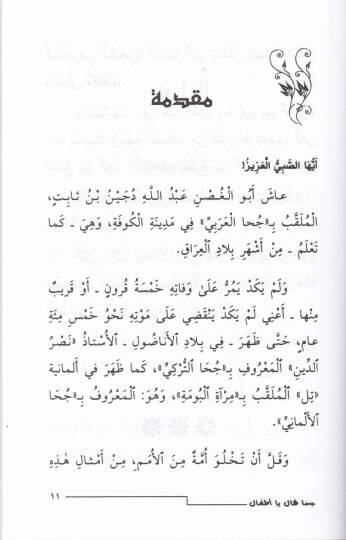 مقدمة
أَيُّهَا الصَّبِيُّ الْعَزِيزُ!
عاشَ أَبُو الْغُصْنِ عَبْدُ اللَّهِ دُجَيْنُ بْنُ ثابِتٍ،
الْمُلَقَّبُ بِـ«جُحا الْعَرَبِيِّ» فِي مَدِينَةِ الْكُوفَةِ، وَهِيَ - كَما
تَعْلَمُ - مِنْ أَشْهَرِ بِلادِ الْعِراقِ.
وَلَمْ يَكَدْ يَمُرُّ عَلَىٰ وَفاتِهِ خَمْسَةُ قُرونٍ - أَوْ قَرِيبٌ
مِنْها - أَعْنِي لَمْ يَكَدْ يَنْقَضِي عَلَىٰ مَوْتِهِ نَحْوُ خَمْسِ مِئَةِ
عامٍ، حَتَّى ظَهَرَ - فِي بِلادِ الْأَناضُولِ - الْأُسْتاذُ «نَصْرُ
الدِّينِ» الْمَعْرُوفِ بِـ«جُحَا التُّرْكِيِّ»، كَما ظَهَرَ فِي أَلمانِية
«تِل» الْمُلَقَّبُ بِـ«مِرْآةِ الْبُومَةِ»، وَهُوَ: الْمَعْرُوفُ بِـ«جُحَا
الْأَلْمانِيِّ».
وَقَلَّ أَنْ تَخْلُوَ أُمَّةٌ مِنَ الْأُمَمِ، مِنْ أَمْثالِ هٰذِهِ
جحا قال يا أطفال
١١